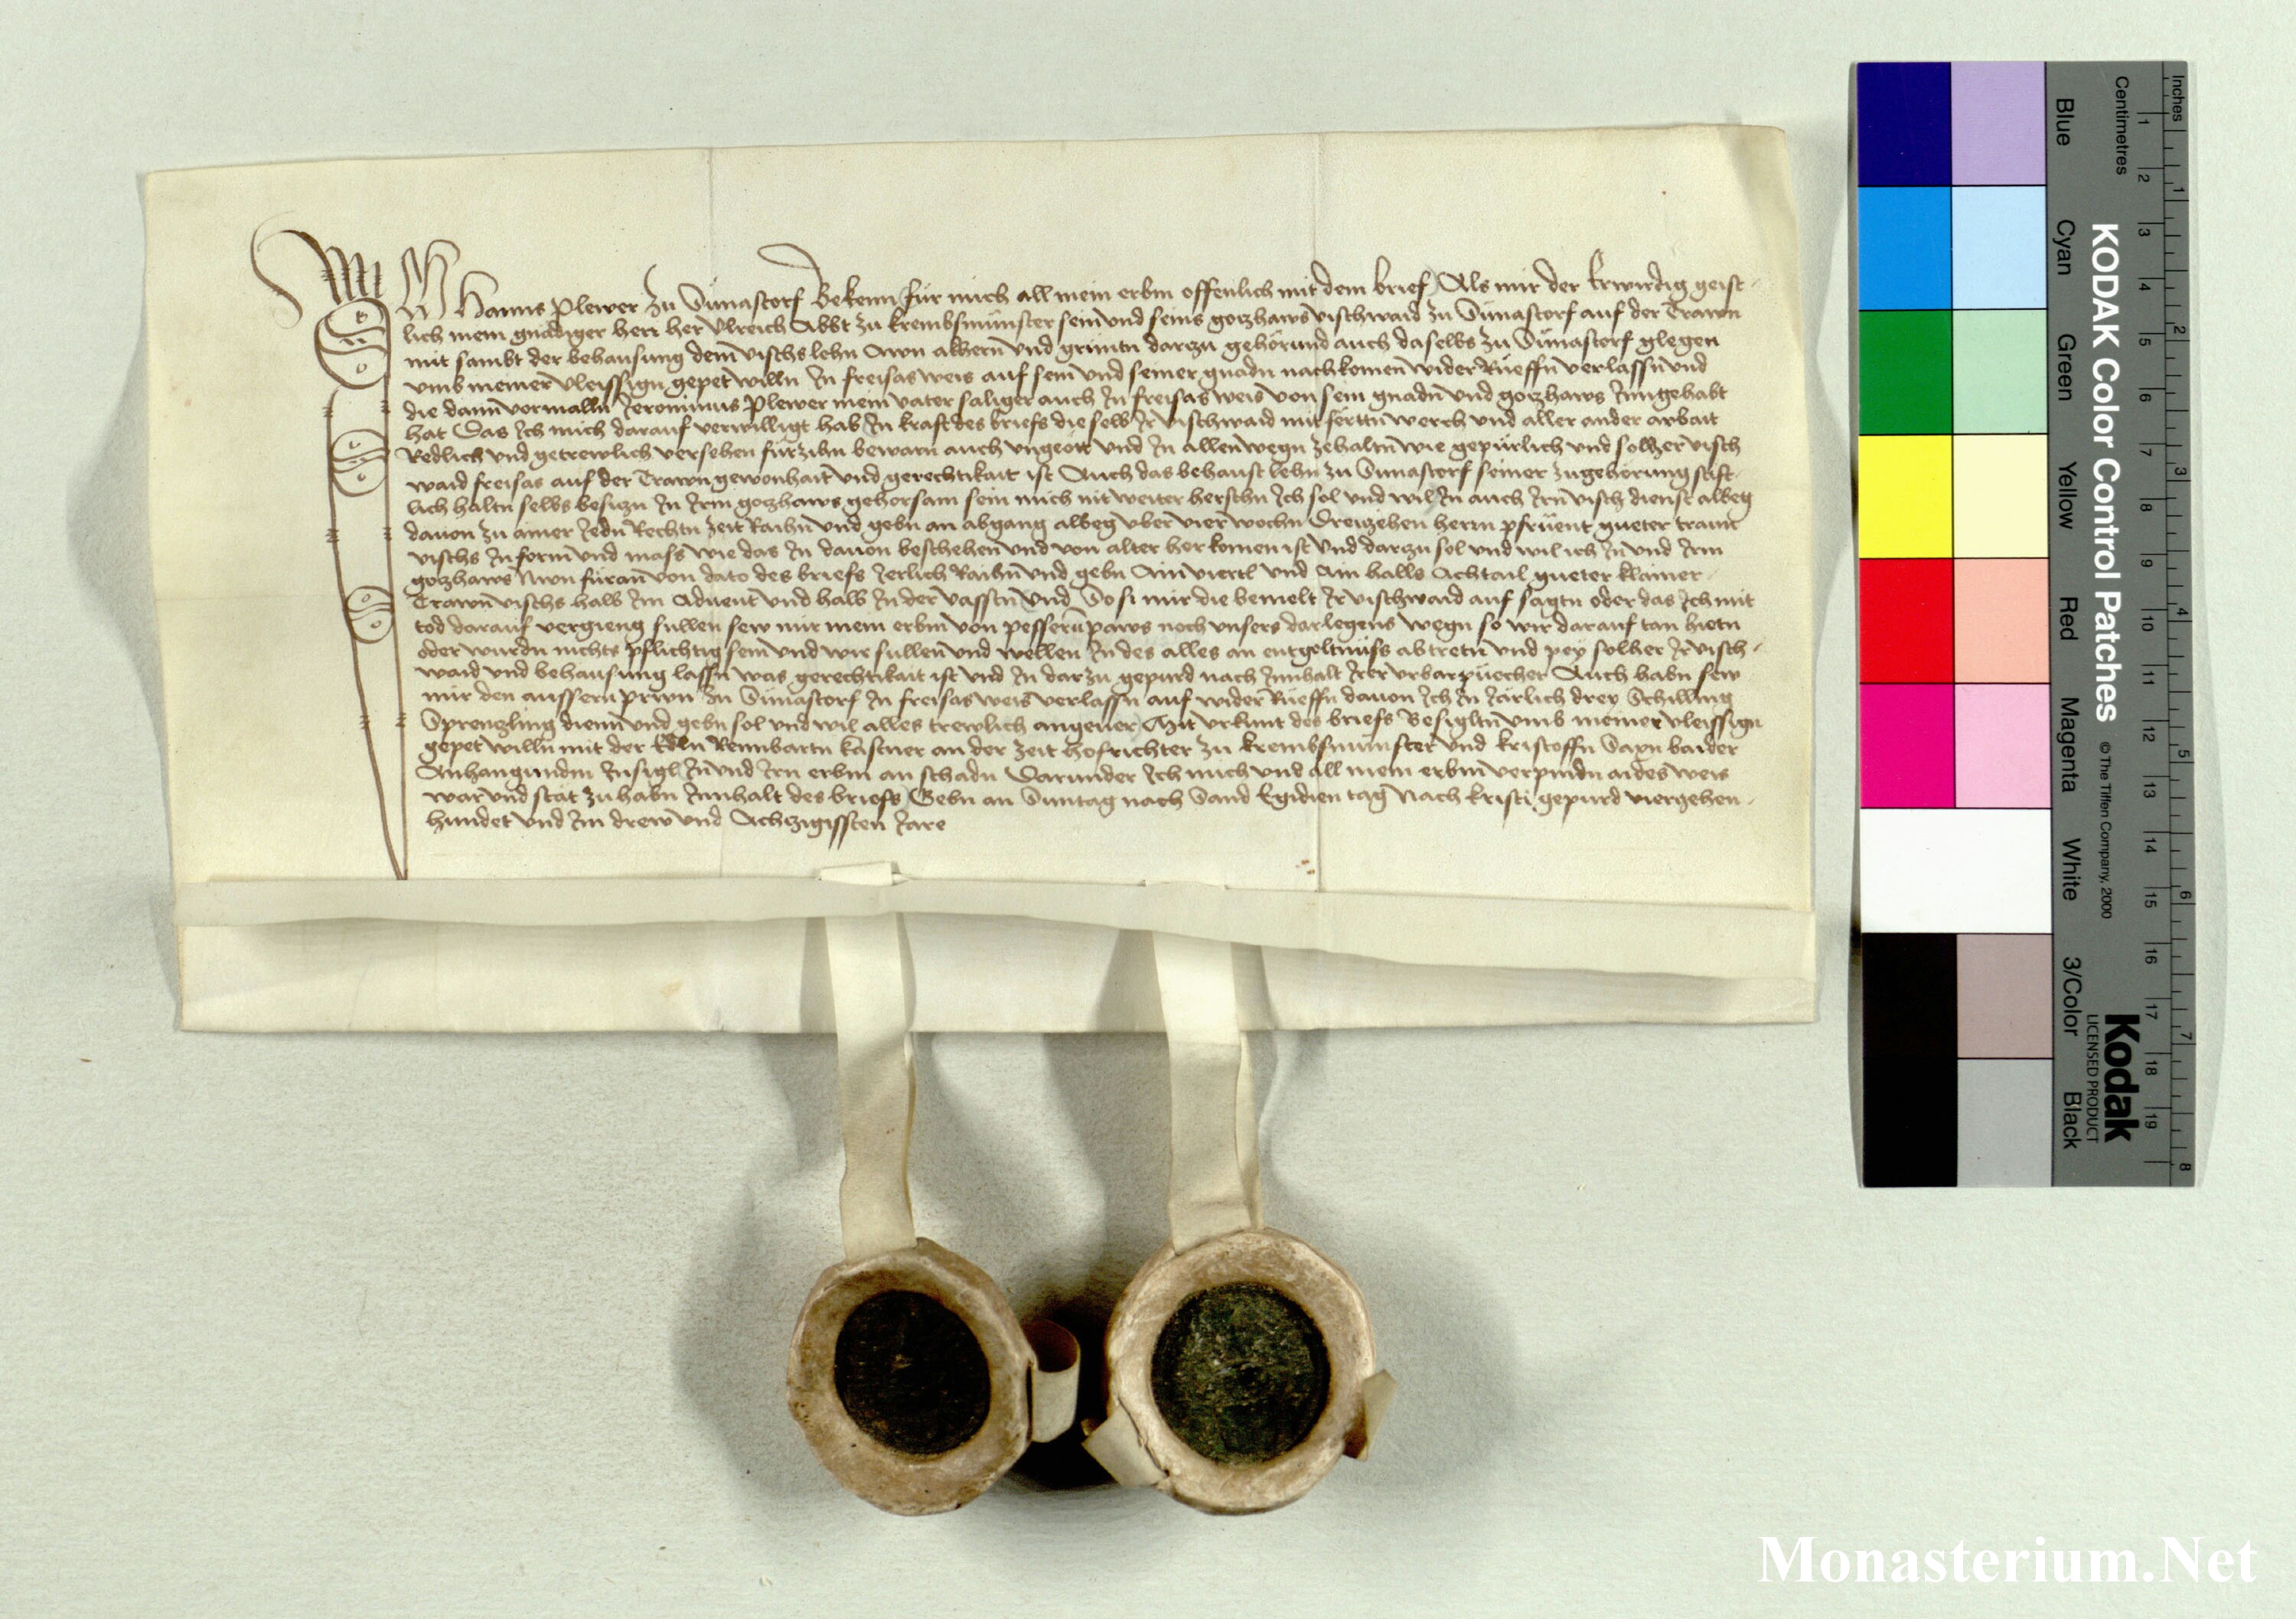 Ich Hanns Plewer zu Sunastorf Bekenn für mich all mein erbm offenlich mit dem brief Als mir der Erwirdig geist-
lich mein gnädiger herr her Ulreich Abbt zu krembsmünster sein und seins gozhaws vischwaid zu Sünastorf auf der Trawn
mit sambt der behausung dem vischs lehn Awn akhern und grüntn darczu gehörund auch daselbs zu Sünastorf glegen
umb meiner vleissign gepet willn In freisas weis auf sein und seiner gnadn nachkomen wider Rüeffn verlassn und
die dann vormalln Jeronimus Plewer mein vater säliger auch In freisas weis von sein gnadn und gozhaws Inngehabt
hat Das Ich mich darauf verwilligt hab In kraft des briefs die selb Ir vischwaid mit ferttn werch und aller ander arbait
Redlich und getrewlich versehen fürzihn bewarn auch ungeött und In allen wegn zehaltn wie gepürlich und solher visch
waid freisas auf der Trawn gewonhait und gerechtikait ist Auch das behaust lehn zu Sunastorf seiner zugehörung stift-
lich haltn selbs besiczn In Irm gozhaws gehorsam sein mich nit weiter herschn Ich sol und wil In auch Irn visch dienst albeg
davon zu ainer Jedn Rechtn zeit Raihn und gebn an abgang albeg uber vier wochn Dreizehen herrn pfrüent gueter trawn
vischs In form und mass wie das In davon beschehen und von alter her komen ist Und darczu sol und wil ich In und Irm
gozhaws Nun füran von dato des briefs Jerlich Raihn und gebn Ain viertl und Ain halbs Achtail gueter klainer
Trawn vischs halb Im Advent und halb In der vasstn Und So si mir die bemelt Ir vischwaid auf sagtn oder das Ich mit
tod darauf vergieng sullen sew mir mein erbm von pesserung paws noch unsers darlegens wegn so wir darauf tan hietn
oder wurdn nichts pflichtig sein und wir sullen und wellen In des alles an entgeltnüss abtretn und pey solher Ir visch-
waid und behausung lassn was gerechtikait ist und In darzu gepürd nach Innhalt Irer urbarpüecher Auch habn sew
mir den aussern prwn zu Sünastorf In freisas weis verlassn auf wider Rüeffn davon Ich In Järlich drey Schilling
Sprenczling dienn und gebn sol und wil alles trewlich angever Mit urkunt des briefs Besigltn umb meiner vleissign
gepet willn mit der Edeln Rennbartn kastner an der zeit hofrichter zu krembsmünster und kristoffn Saxn baider
Anhangundm Insigl In und Irn erbm an schadn Darunder Ich mich und all mein erbm verpindn aides weis
war und stät zu habn Innhalt des briefs Gebn an Suntag nach Sand Egidien tag Nach kristi gepurd vierzehen-
hundet und Im drew und Achczigissten Jare
Inches
Centimetres
KODAK Color Control Patches
© The Tiffen Company, 2000
Kodak
LICENSED PRODUCT
Blue
Cyan
Green
Yellow
Red
Magenta
White
3/Color
Black
1 2 3 4 5 6 7 8 9 10 11 12 13 14 15 16 17 18 19
1 2 3 4 5 6 7 8
Monasterium.Net